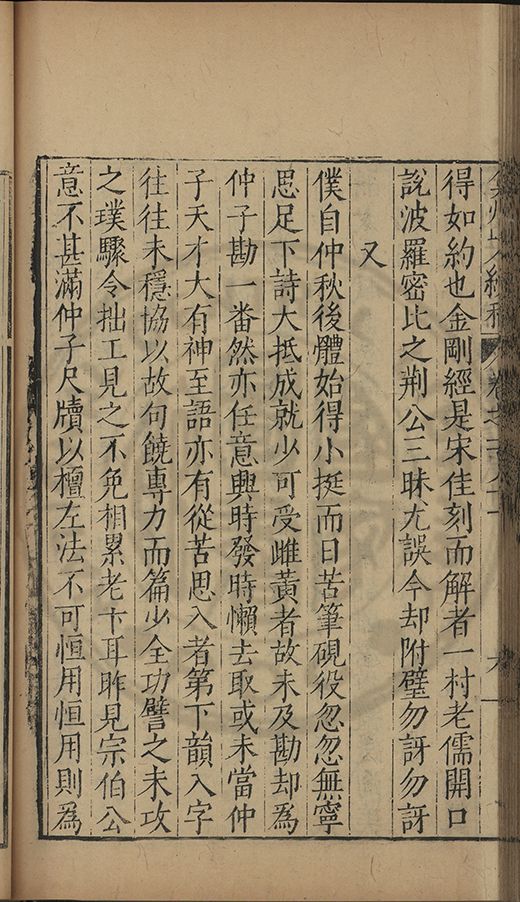 得如約也金剛經是宋佳刻而解者一村老儒開口
說波羅密比之荆公三昧尤誤今却附璧勿訝勿訝
又
僕自仲秋後體始得小挺而日苦筆硯役忽忽無寧
思足下詩大抵成就少可受雌黃者故未及勘却為
仲子勘一番然亦任意興時發時懶去取或未當仲
子天才大有神至語亦有從苦思入者第下韻入字
往往未穩協以故句饒專力而篇少全功譬之未攻
之璞驟令拙工見之不免相累老卞耳昨見宗伯公
意不甚滿仲子尺牘以檀左法不可恒用恒用則為